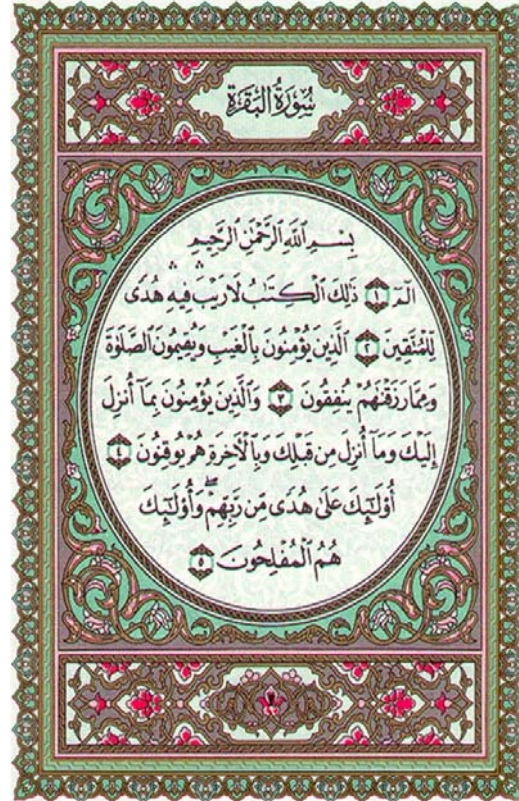 سُورَةُ البَقَرَةِ
بِسْمِ ٱللَّهِ ٱلرَّحْمَٰنِ ٱلرَّحِيمِ
الٓمٓ ١ ذَٰلِكَ ٱلْكِتَٰبُ لَا رَيْبَ ۛ فِيهِ ۛ هُدًى
لِّلْمُتَّقِينَ ٢ ٱلَّذِينَ يُؤْمِنُونَ بِٱلْغَيْبِ وَيُقِيمُونَ ٱلصَّلَوٰةَ
وَمِمَّا رَزَقْنَٰهُمْ يُنفِقُونَ ٣ وَٱلَّذِينَ يُؤْمِنُونَ بِمَآ أُنزِلَ
إِلَيْكَ وَمَآ أُنزِلَ مِن قَبْلِكَ وَبِٱلْءَاخِرَةِ هُمْ يُوقِنُونَ ٤
أُو۟لَٰٓئِكَ عَلَىٰ هُدًى مِّن رَّبِّهِمْ ۖ وَأُو۟لَٰٓئِكَ
هُمُ ٱلْمُفْلِحُونَ ٥
٢